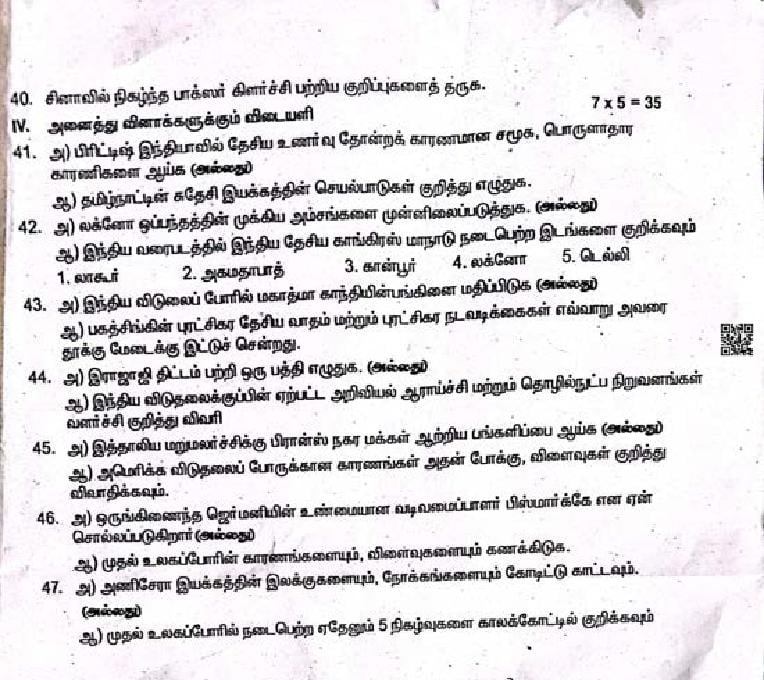 40. சினாவில் நிகழ்ந்த பாக்ஸர் கிளர்ச்சி பற்றிய குறிப்புகளைத் தருக.
IV. அனைத்து வினாக்களுக்கும் விடையளி 7 x 5 = 35
41. அ) பிரிட்டிஷ் இந்தியாவில் தேசிய உணர்வு தோன்றக் காரணமான சமூக, பொருளாதார
காரணிகளை ஆய்க (அல்லது)
ஆ) தமிழ்நாட்டின் சுதேசி இயக்கத்தின் செயல்பாடுகள் குறித்து எழுதுக.
42. அ) லக்னோ ஒப்பந்தத்தின் முக்கிய அம்சங்களை முன்னிலைப்படுத்துக. (அல்லது)
ஆ) இந்திய வரைபடத்தில் இந்திய தேசிய காங்கிரஸ் மாநாடு நடைபெற்ற இடங்களை குறிக்கவும்
1. லாகூர் 2. அகமதாபாத் 3. கான்பூர் 4. லக்னோ 5. டெல்லி
43. அ) இந்திய விடுலைப் போரில் மகாத்மா காந்தியின்பங்கினை மதிப்பிடுக (அல்லது)
ஆ) பகத்சிங்கின் புரட்சிகர தேசிய வாதம் மற்றும் புரட்சிகர நடவடிக்கைகள் எவ்வாறு அவரை
தூக்கு மேடைக்கு இட்டுச் சென்றது.
44. அ) இராஜாஜி திட்டம் பற்றி ஒரு பத்தி எழுதுக. (அல்லது)
ஆ) இந்திய விடுதலைக்குப்பின் ஏற்பட்ட அறிவியல் ஆராய்ச்சி மற்றும் தொழில்நுட்ப நிறுவனங்கள்
வளர்ச்சி குறித்து விவரி
45. அ) இத்தாலிய மறுமலர்ச்சிக்கு பிரான்ஸ் நகர மக்கள் ஆற்றிய பங்களிப்பை ஆய்க (அல்லது)
ஆ) அமெரிக்க விடுதலைப் போருக்கான காரணங்கள் அதன் போக்கு, விளைவுகள் குறித்து
விவாதிக்கவும்.
46. அ) ஒருங்கிணைந்த ஜெர்மனியின் உண்மையான வடிவமைப்பாளர் பிஸ்மார்க்கே என ஏன்
சொல்லப்படுகிறார் (அல்லது)
ஆ) முதல் உலகப்போரின் காரணங்களையும், விளைவுகளையும் கணக்கிடுக.
47. அ) அணிசேரா இயக்கத்தின் இலக்குகளையும், நோக்கங்களையும் கோடிட்டு காட்டவும்.
(அல்லது)
ஆ) முதல் உலகப்போரில் நடைபெற்ற ஏதேனும் 5 நிகழ்வுகளை காலக்கோட்டில் குறிக்கவும்